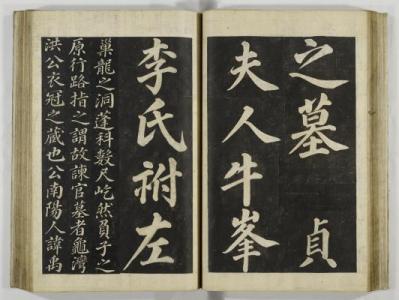 之墓 貞
夫人牛峯
李氏祔左
巢龍之洞蓬科數尺屹然負子之
原行路指之謂故諫官墓者龜灣
洪公衣冠之蔵也公南陽人諱禹